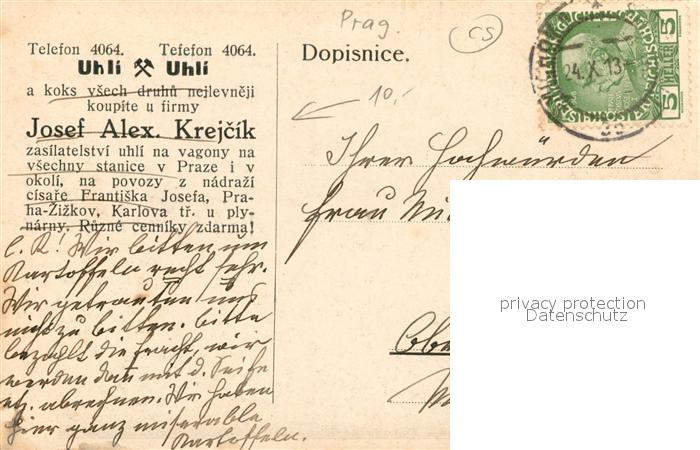 Prag.
CS
Telefon 4064. Tefefon 4064.
Uhlí ⚒ Uhlí
a koks všech druhů nejlevněji
koupíte u firmy
Josef Alex. Krejčík
zasílatelství uhlí na vagony na
všechny stanice v Praze i v
okolí, na povozy z nádraží
císaře Františka Josefa, Pra-
ha-Žižkov, Karlova tř. u ply-
nárny. Různé cenníky zdarma!
Dopisnice.
5 HELLER 5
24.X.13
10,-
Ihrer Hochwürden
Frau
privacy protection
Datenschutz
L. R! Wir bitten um
Kartoffeln recht sehr.
Wir getrauten uns
nicht zu bitten. bitte
bezahlt die Fracht, wir
werden dan mit d. Seife
etz. abrechnen. Wir haben
hier ganz miserable
Kartoffeln.